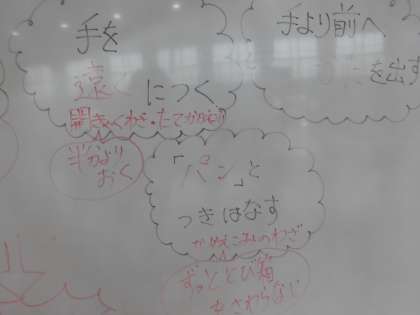 手を
遠く
につく
開きゃくわざ・たてかかえ
半分より
おく
手より前へ
を出す
「パン」と
つきはなす
かかえこみのわざ
ずっととび箱
をさわらない